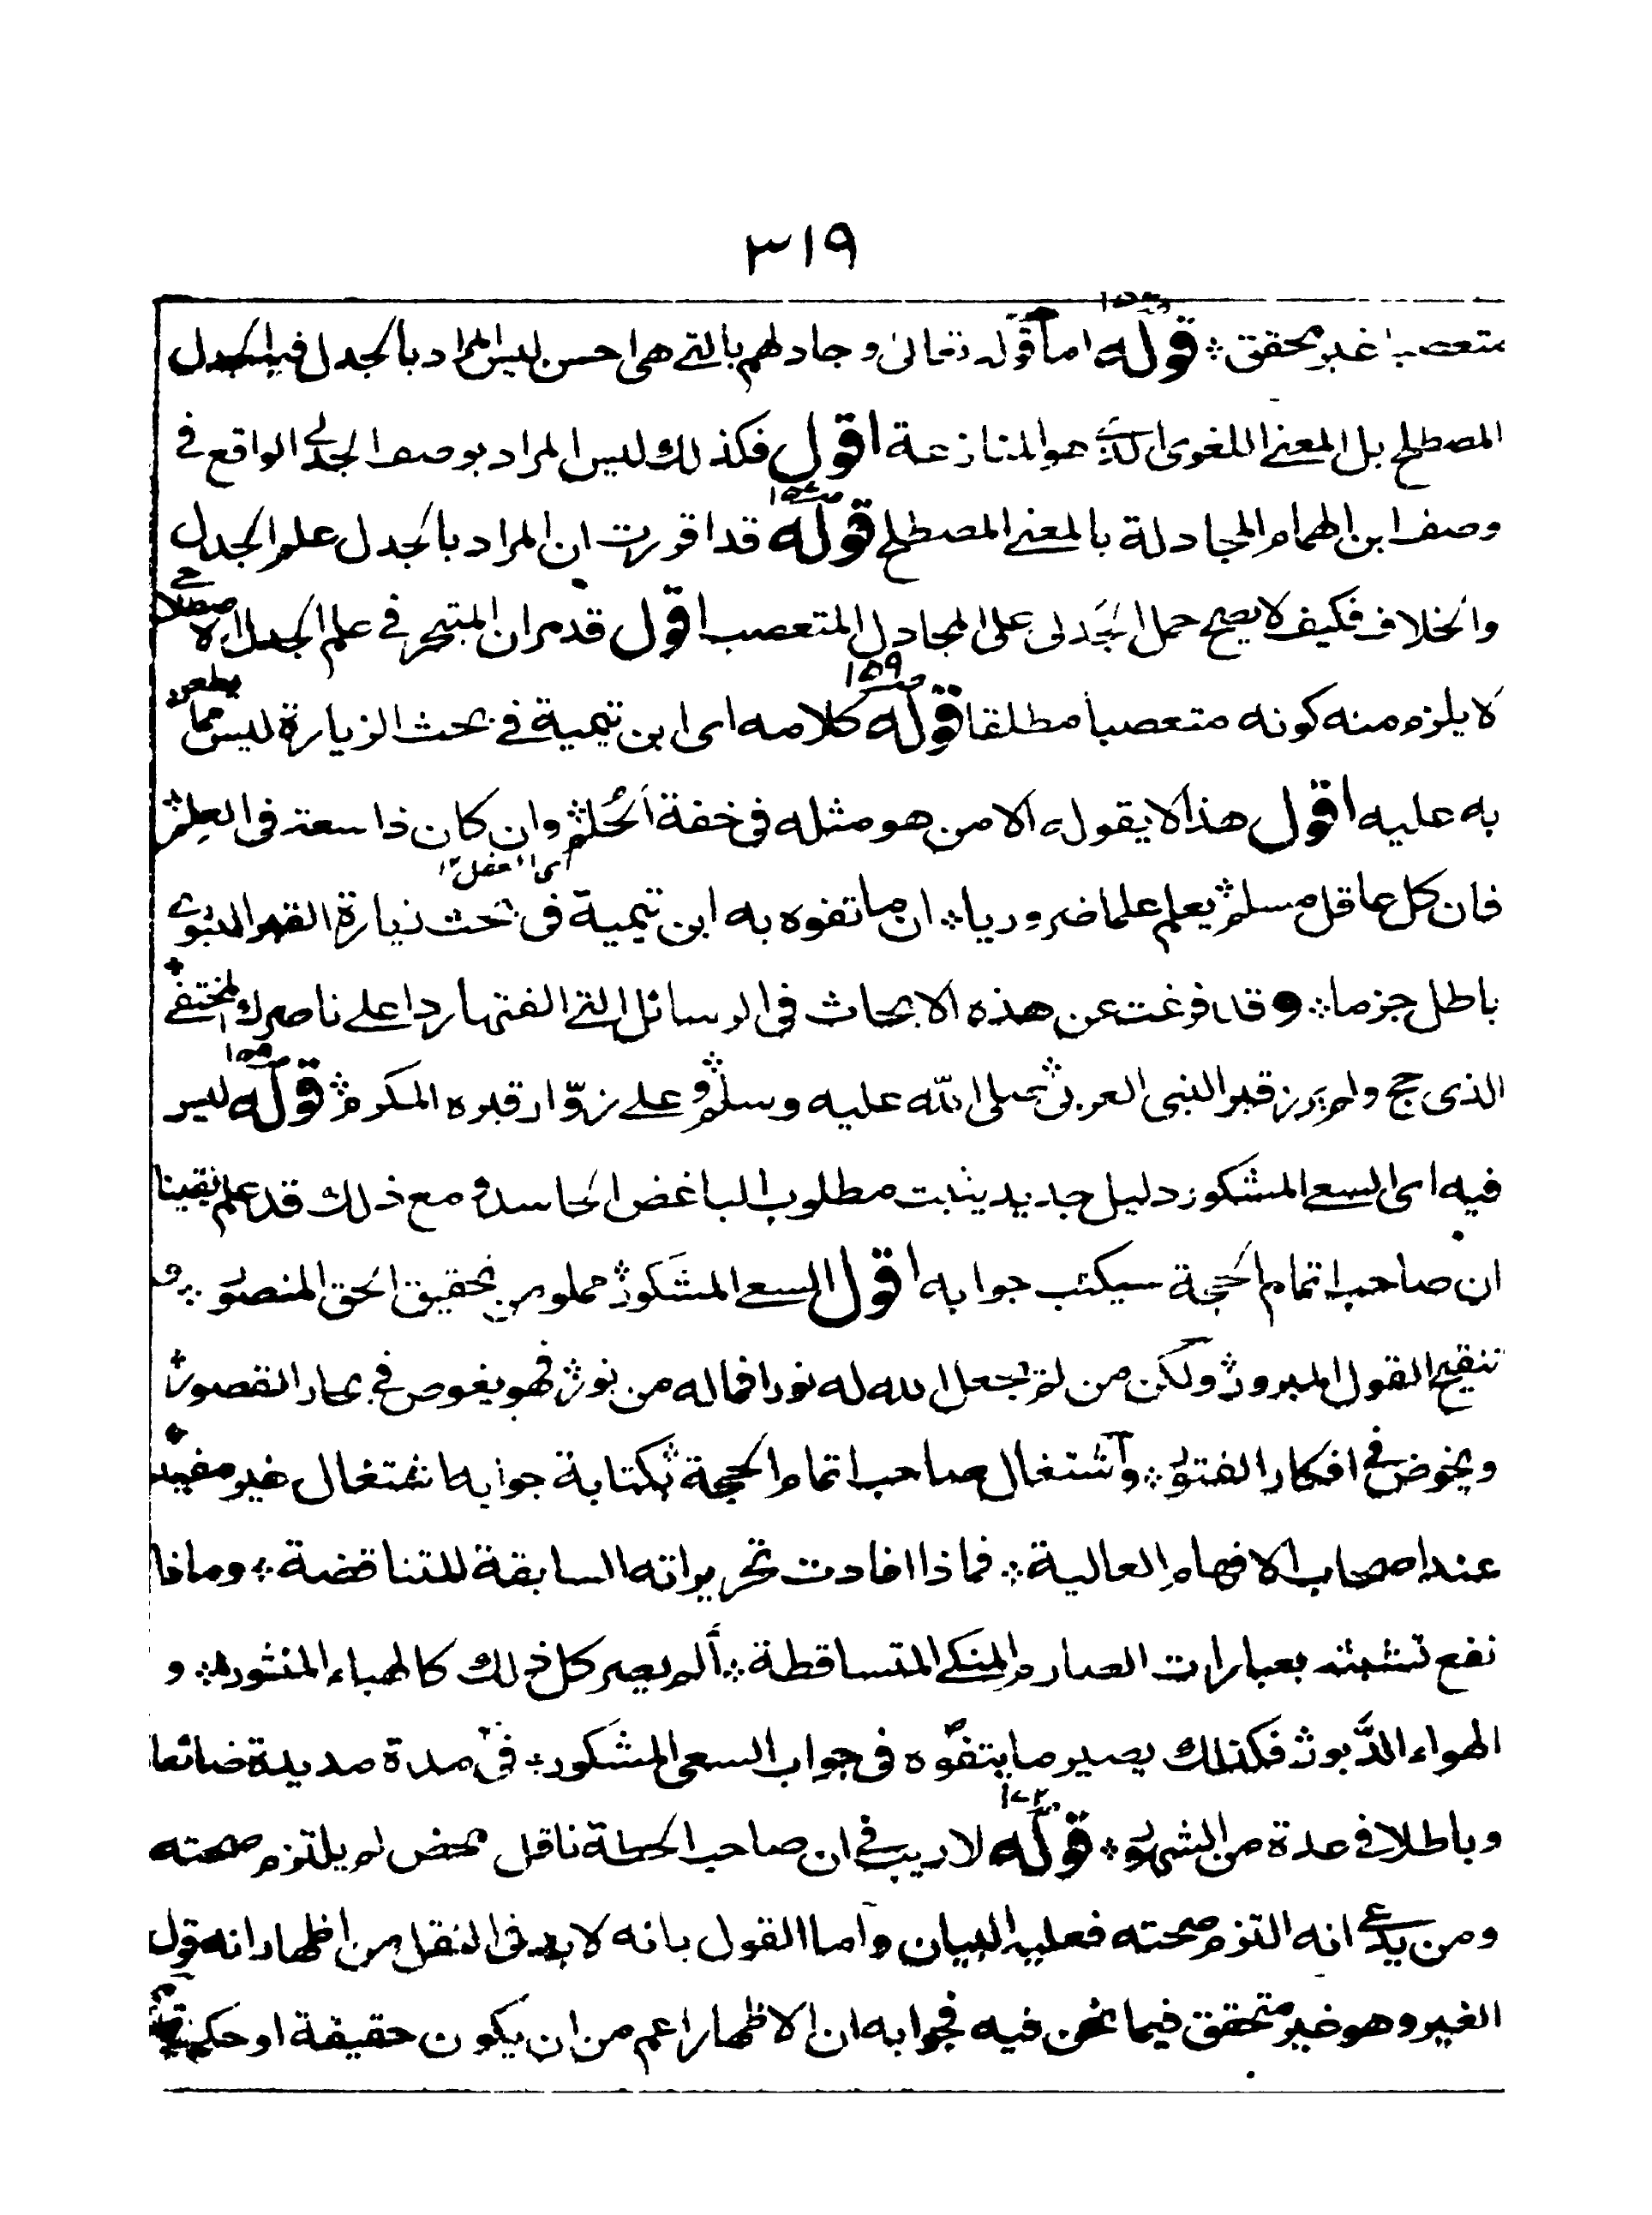 ٣١٩
متعصبا غير محقق ؞ قوله اما قوله تعالى وجادلهم بالتي هى احسن ليس المراد بالجدل فيه الجدل
المصطلح بل المعنے اللغوى الذى هو المنازعة اقول فكذلك ليس المراد بوصف الجدلى الواقع فے
وصف ابن الهمام المجادلة بالمعنے المصطلح قوله قد اقررت ان المراد بالجدل علم الجدل
والخلاف فكيف لا يصح حمل الجدلى على المجادل المتعصب اقول قد مر ان المتبحر فے علم الجدل
لا يلزم منه كونه متعصبا مطلقا قوله ١٥٩ كلامه اى ابن تيمية فے بحث الزيارة ليس مما يطعن
به عليه اقول هذا لا يقوله الا من هو مثله فى خفة الحُلم ؞ وان كان ذا سعة فى العلم ؞
اى العقل ١٢
فان كل عاقل مسلم ؞ يعلم علما ضروريا ؞ ان ما تفوه به ابن تيمية فى بحث زيارة القبر النبوے
باطل جزما ؞ وقد فرغت عن هذه الابحاث فى الرسائل التے الفتها ردا علے ناصرك المختفے
الذى حج ولم يزر قبر النبى العربى ؞ صلى الله عليه وسلم ؞ وعلے زوّار قبره المكرم ؞ قوله ليس
فيه اى السعے المشكور دليل جديد يثبت مطلوب الباغض الحاسد ومع ذلك قد علم يقينا
ان صاحب اتمام الحجة سيكتب جوابه اقول السعے المشكور ؞ مملو من تحقيق الحق المنصور ؞ و
تنقيح القول المبرور ؞ ولكن من لم يجعل الله له نورا فما له من نور ؞ فهو يغوص فے بحار القصور ؞
ويخوض فے افكار الفتور ؞ واشتغال صاحب اتمام الحجة ؞ بكتابة جوابه اشتغال غير مفيد
عند اصحاب الافهام العالية ؞ فماذا افادت تحريراته السابقة المتناقضة ؞ وماذا
نفع تشبثه بعبارات الصارم المنكے المتساقطة ؞ ألم يصر كل ذلك كالهباء المنثور ؞ و
الهواء الدَّبور ؞ فكذلك يصير ما يتفوّه فى جواب السعى المشكور ؞ فى مدة مديدة ضائعا
وباطلا فے عدة من الشهور ؞ قوله لا ريب فے ان صاحب الحطة ناقل محض لم يلتزم صحته
ومن يدعے انه التزم صحته فعليه البيان واما القول بانه لا بد فى النقل من اظهار انه قول
الغير وهو غير متحقق فيما نحن فيه فجوابه ان الاظهار اعم من ان يكون حقيقة او حكما